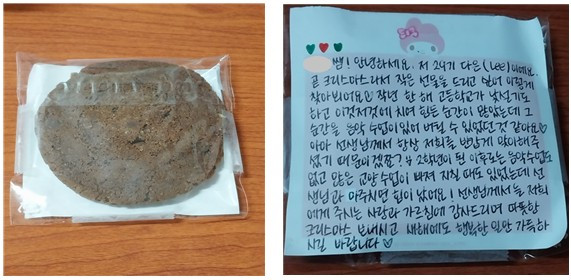 쌤! 안녕하세요. 저 24기 다은(Lee)이에요.
곧 크리스마스라서 작은 선물을 드리고 싶어 이렇게
찾아뵈어요♡ 작년 한 해 고등학교가 낯설기도
하고 이것저것에 치여 힘든 순간이 많았는데 그
순간을 음악 수업이 있어 버틸 수 있었던 것 같아요♡
아마 선생님께서 항상 저희를 반갑게 맞아해주
셨기 때문이겠죠? 2학년이 된 이후로는 음악수업도
없고 많은 교양 수업이 빠져 지칠 때도 있었는데 선
생님과 마주치면 힘이 났어요! 선생님께서 늘 저희
에게 주시는 사랑과 가르침에 감사드리며 따뜻한
크리스마스 보내시고 새해에도 행복한 일만 가득하
시길 바랍니다♡